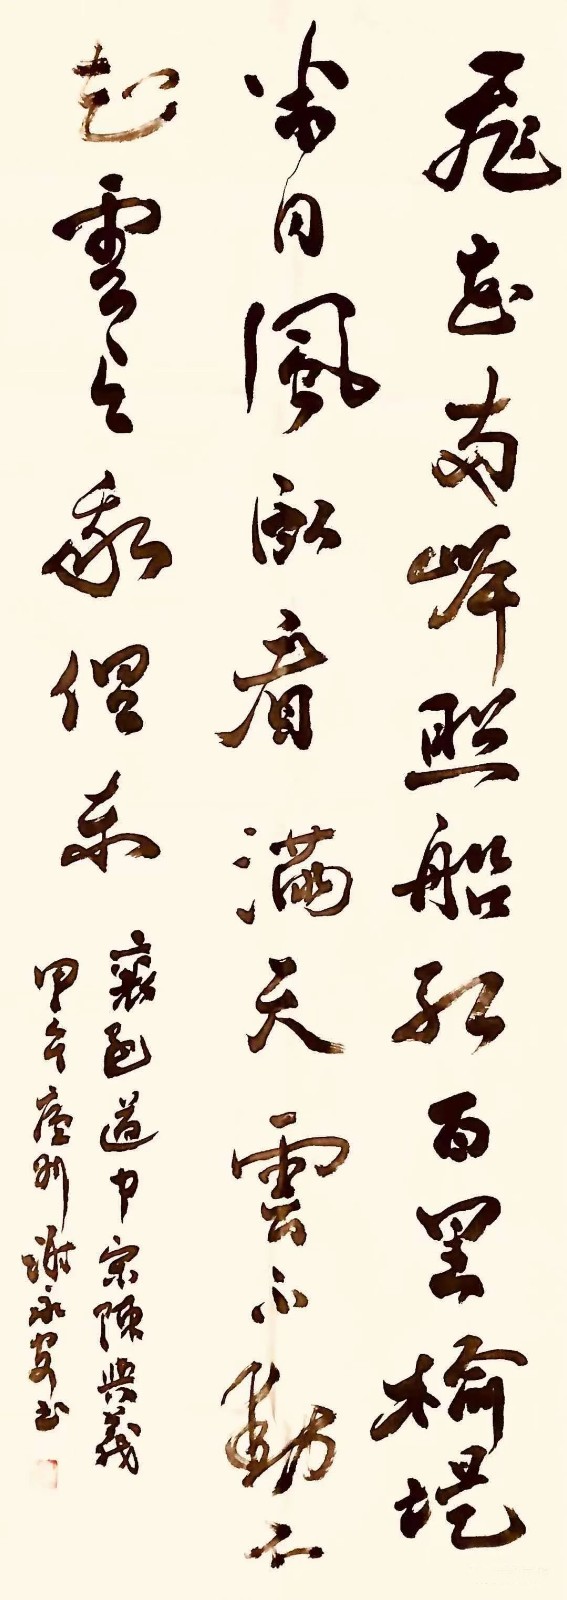 飛花両岸照船紅百里榆堤
半日風臥看滿天雲不動不
知雲与我俱東
襄邑道中宋陳與義
甲午廬州謝永安書